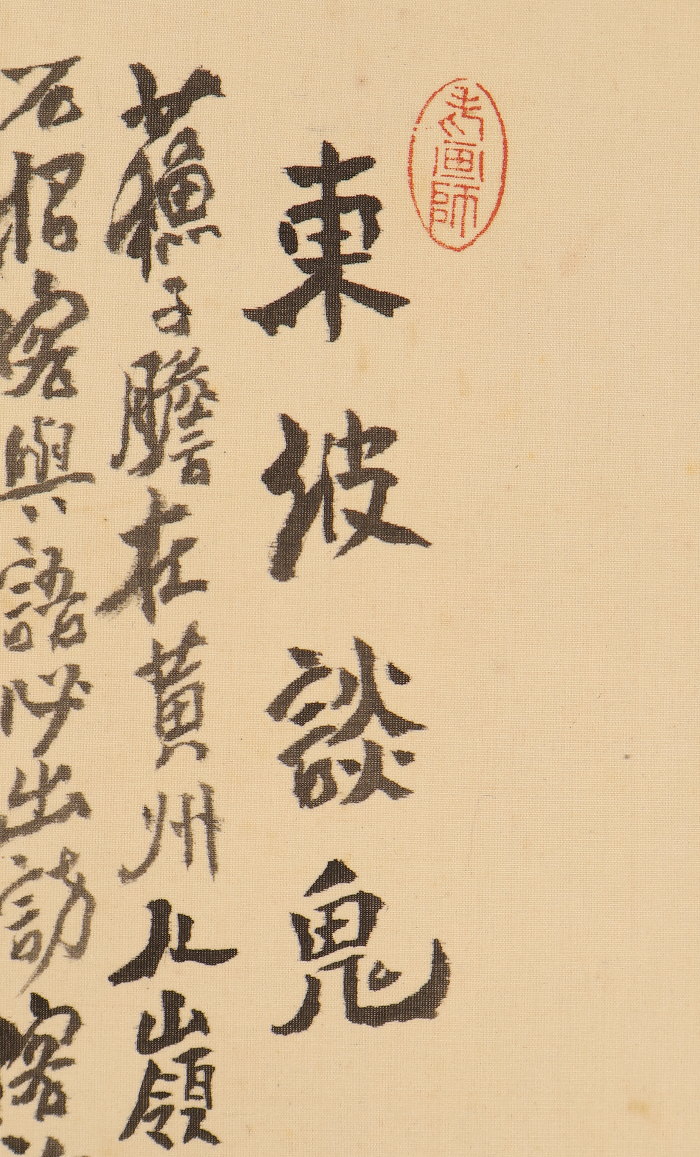 老画師
東坡談鬼
蘇子瞻在黃州及嶺
不招客與語必出訪客